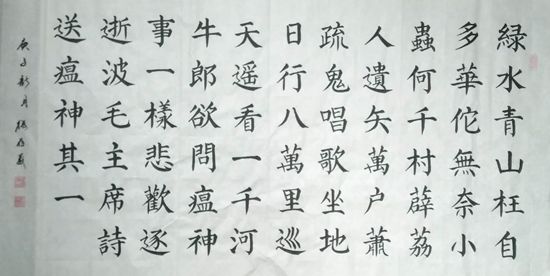 緑水青山枉自
多華佗無奈小
蟲何千村薜荔
人遺矢萬户蕭
疏鬼唱歌坐地
日行八萬里巡
天遥看一千河
牛郎欲問瘟神
事一樣悲歡逐
逝波毛主席詩
送瘟神其一
庚子 月